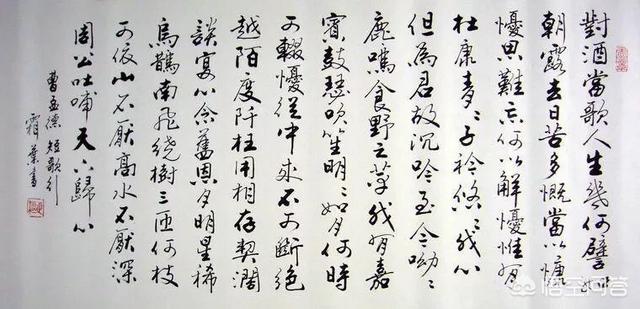 對酒當歌人生幾何譬如
朝露去日苦多慨當以慷
憂思難忘何以解憂惟有
杜康青〻子衿悠〻我心
但為君故沉吟至今呦〻
鹿鳴食野之草我有嘉
賓鼓瑟吹笙明〻如月何時
可輟憂從中來不可斷絕
越陌度阡枉用相存契闊
談宴心念舊恩月明星稀
烏鵲南飛繞樹三匝何枝
可依山不厭高水不厭深
周公吐哺天下歸心
曹孟德短歌行
霜葉書
悟空问答